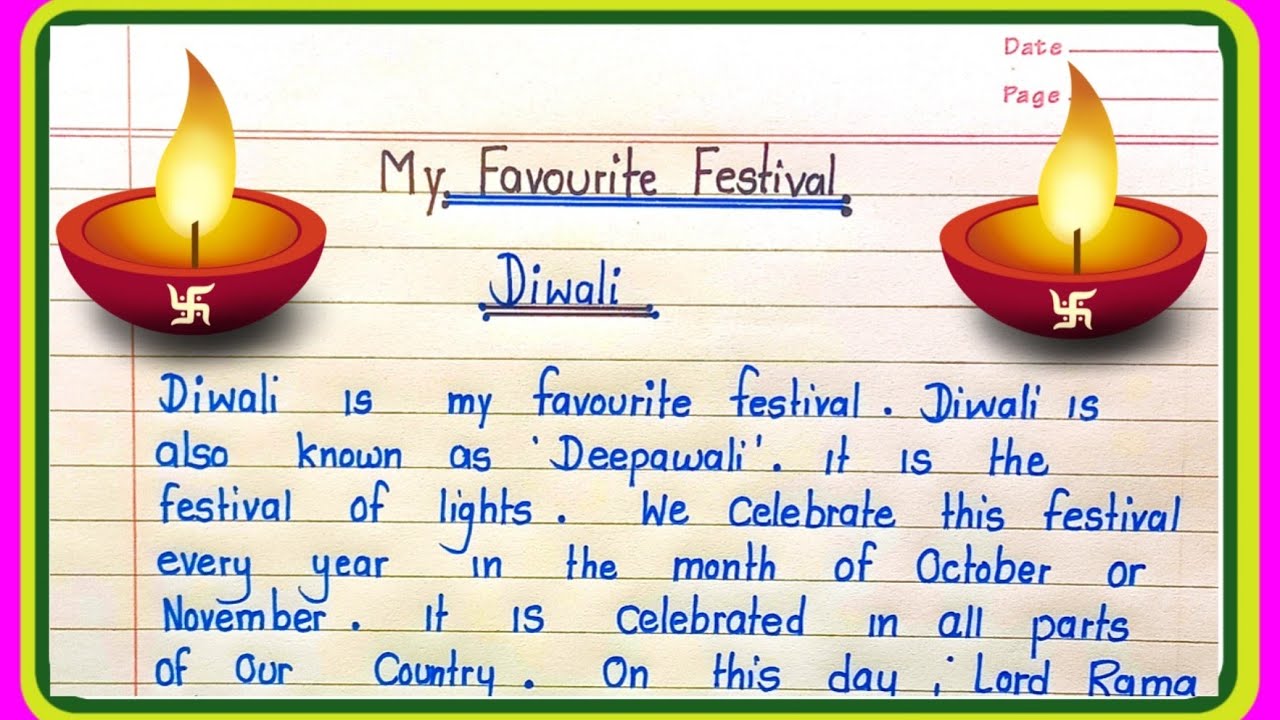 Date
Page
My Favourite Festival
Diwali
Diwali is my favourite festival. Diwali is
also known as 'Deepawali'. it is the
festival of lights. We celebrate this festival
every year in the month of October or
November. it is celebrated in all parts
of our Country. On this day ; Lord Rama